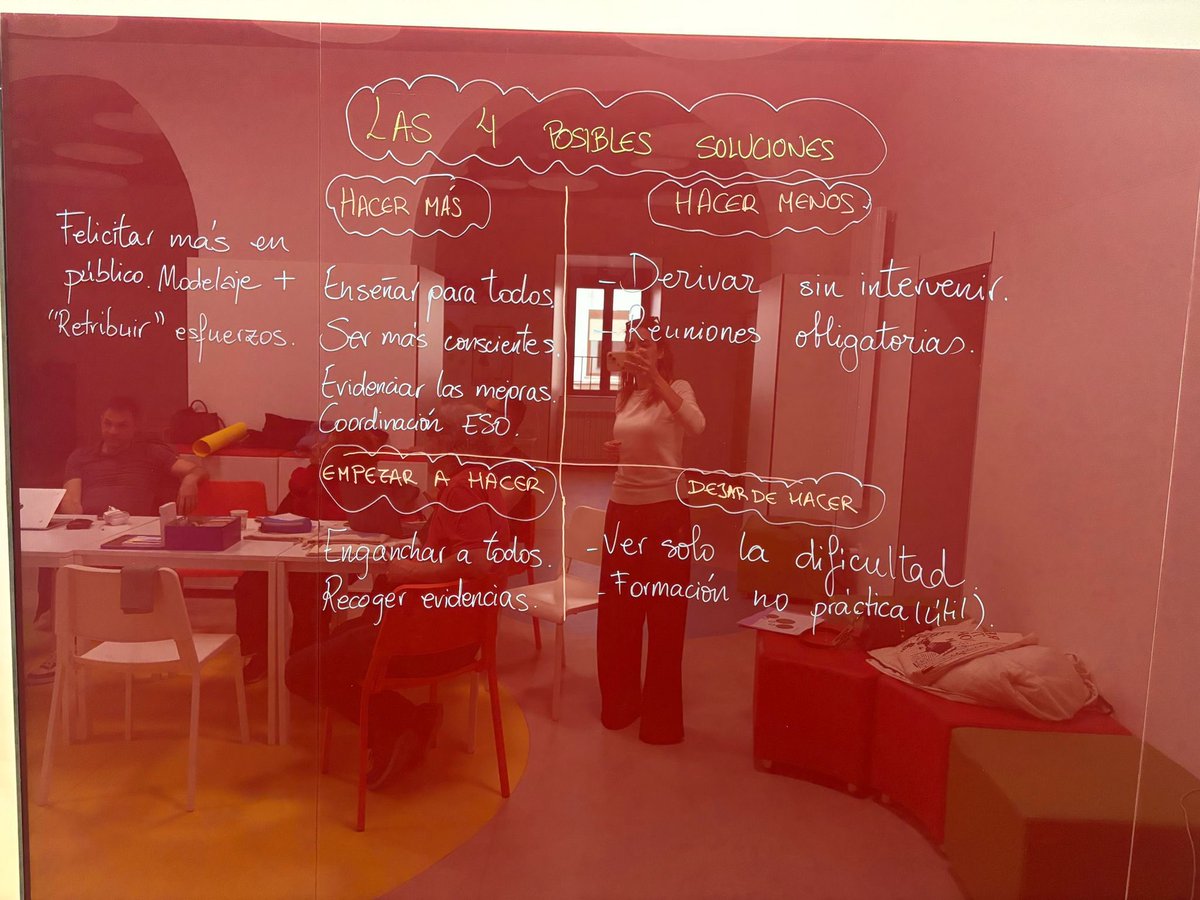 LAS 4 POSIBLES SOLUCIONES
HACER MÁS
Felicitar más en
público. Modelaje +
"Retribuir" esfuerzos.
Enseñar para todos.
Ser más conscientes.
Evidenciar las mejoras.
Coordinación ESO.
HACER MENOS
- Derivar sin intervenir.
- Reuniones obligatorias.
EMPEZAR A HACER
Enganchar a todos.
Recoger evidencias.
DEJAR DE HACER
- Ver solo la dificultad.
- Formación no práctica (útil).